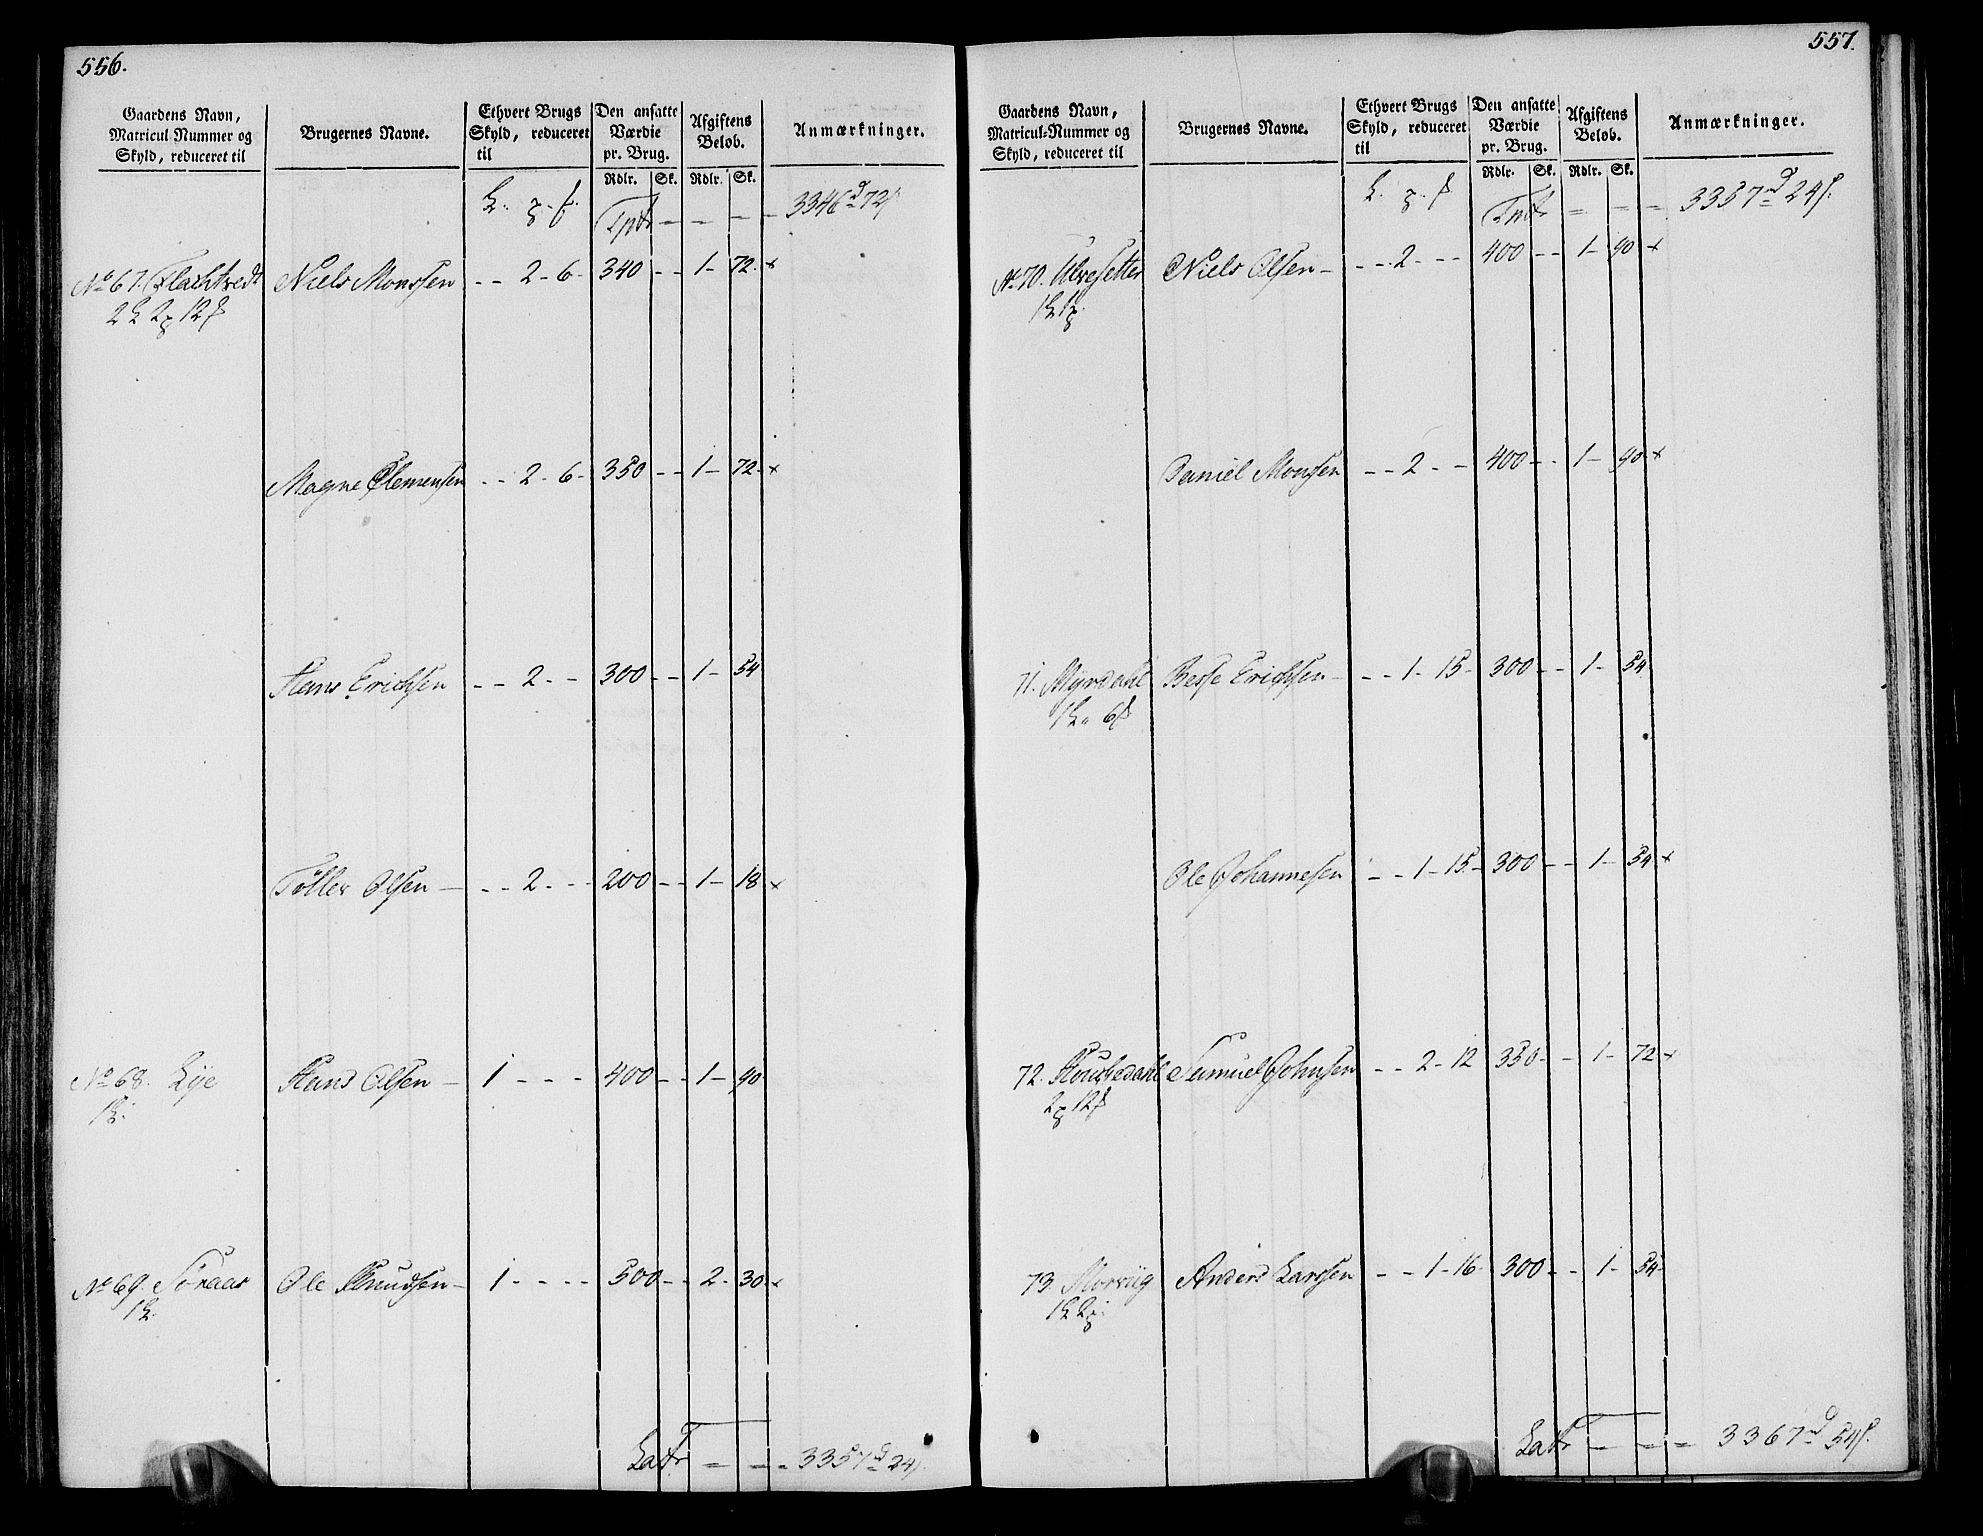 556.
Gaardens Navn, Matricul Nummer og Skyld, reduceret til | Brugernes Navne. | Ethvert Brugs Skyld, reduceret til | Den ansatte Værdie pr. Brug. | Afgiftens Beløb. | Anmærkninger.
Rdlr. | Sk. | Rdlr. | Sk.
Tpt - - - - 3346 72
No 67. Niels Monssen - - 2 - 6 - 340 - - 1 - 72 - x
2 2 12
Magne Clemensen - - 2 - 6 - 350 - - 1 - 72 - x
Hans Erichsen - - 2 - - 300 - - 1 - 54
Töller Olsen - - - 2 - - - 200 - - 1 - 18 x
No 68. Lye Hans Olsen - 1 - - - 400 - - 1 - 90
1
No 69. Söraas Ole Knudsen - 1 - - - - 500 - - 2 - 30 - x
1
Latr = - - = 3357 24
557.
Gaardens Navn, Matricul-Nummer og Skyld, reduceret til | Brugernes Navne. | Ethvert Brugs Skyld, reduceret til | Den ansatte Værdie pr. Brug. | Afgiftens Beløb. | Anmærkninger.
Rdlr. | Sk. | Rdlr. | Sk.
= = = 3357 24
No 70. Ulvesetter Niels Olsen - - - - 2 - - - 400 - - 1 - 90 x
1 1
Daniel Monssen - - 2 - - 400 - - 1 - 90 - x
71. Myrdahl Besse Erichsen - - - 1 - 15 - 300 - - 1 - 54
1 6
Ole Johannesen - - 1 - 15 - 300 - - 1 - 54 x
72. Samuel Johnsen - - 2 - 12 350 - - 1 - 72 x
2 12
73. Morviig Anders Larssen - - 1 - 16 - 300 - - 1 - 54
1 2
Latr = = = 3367 54